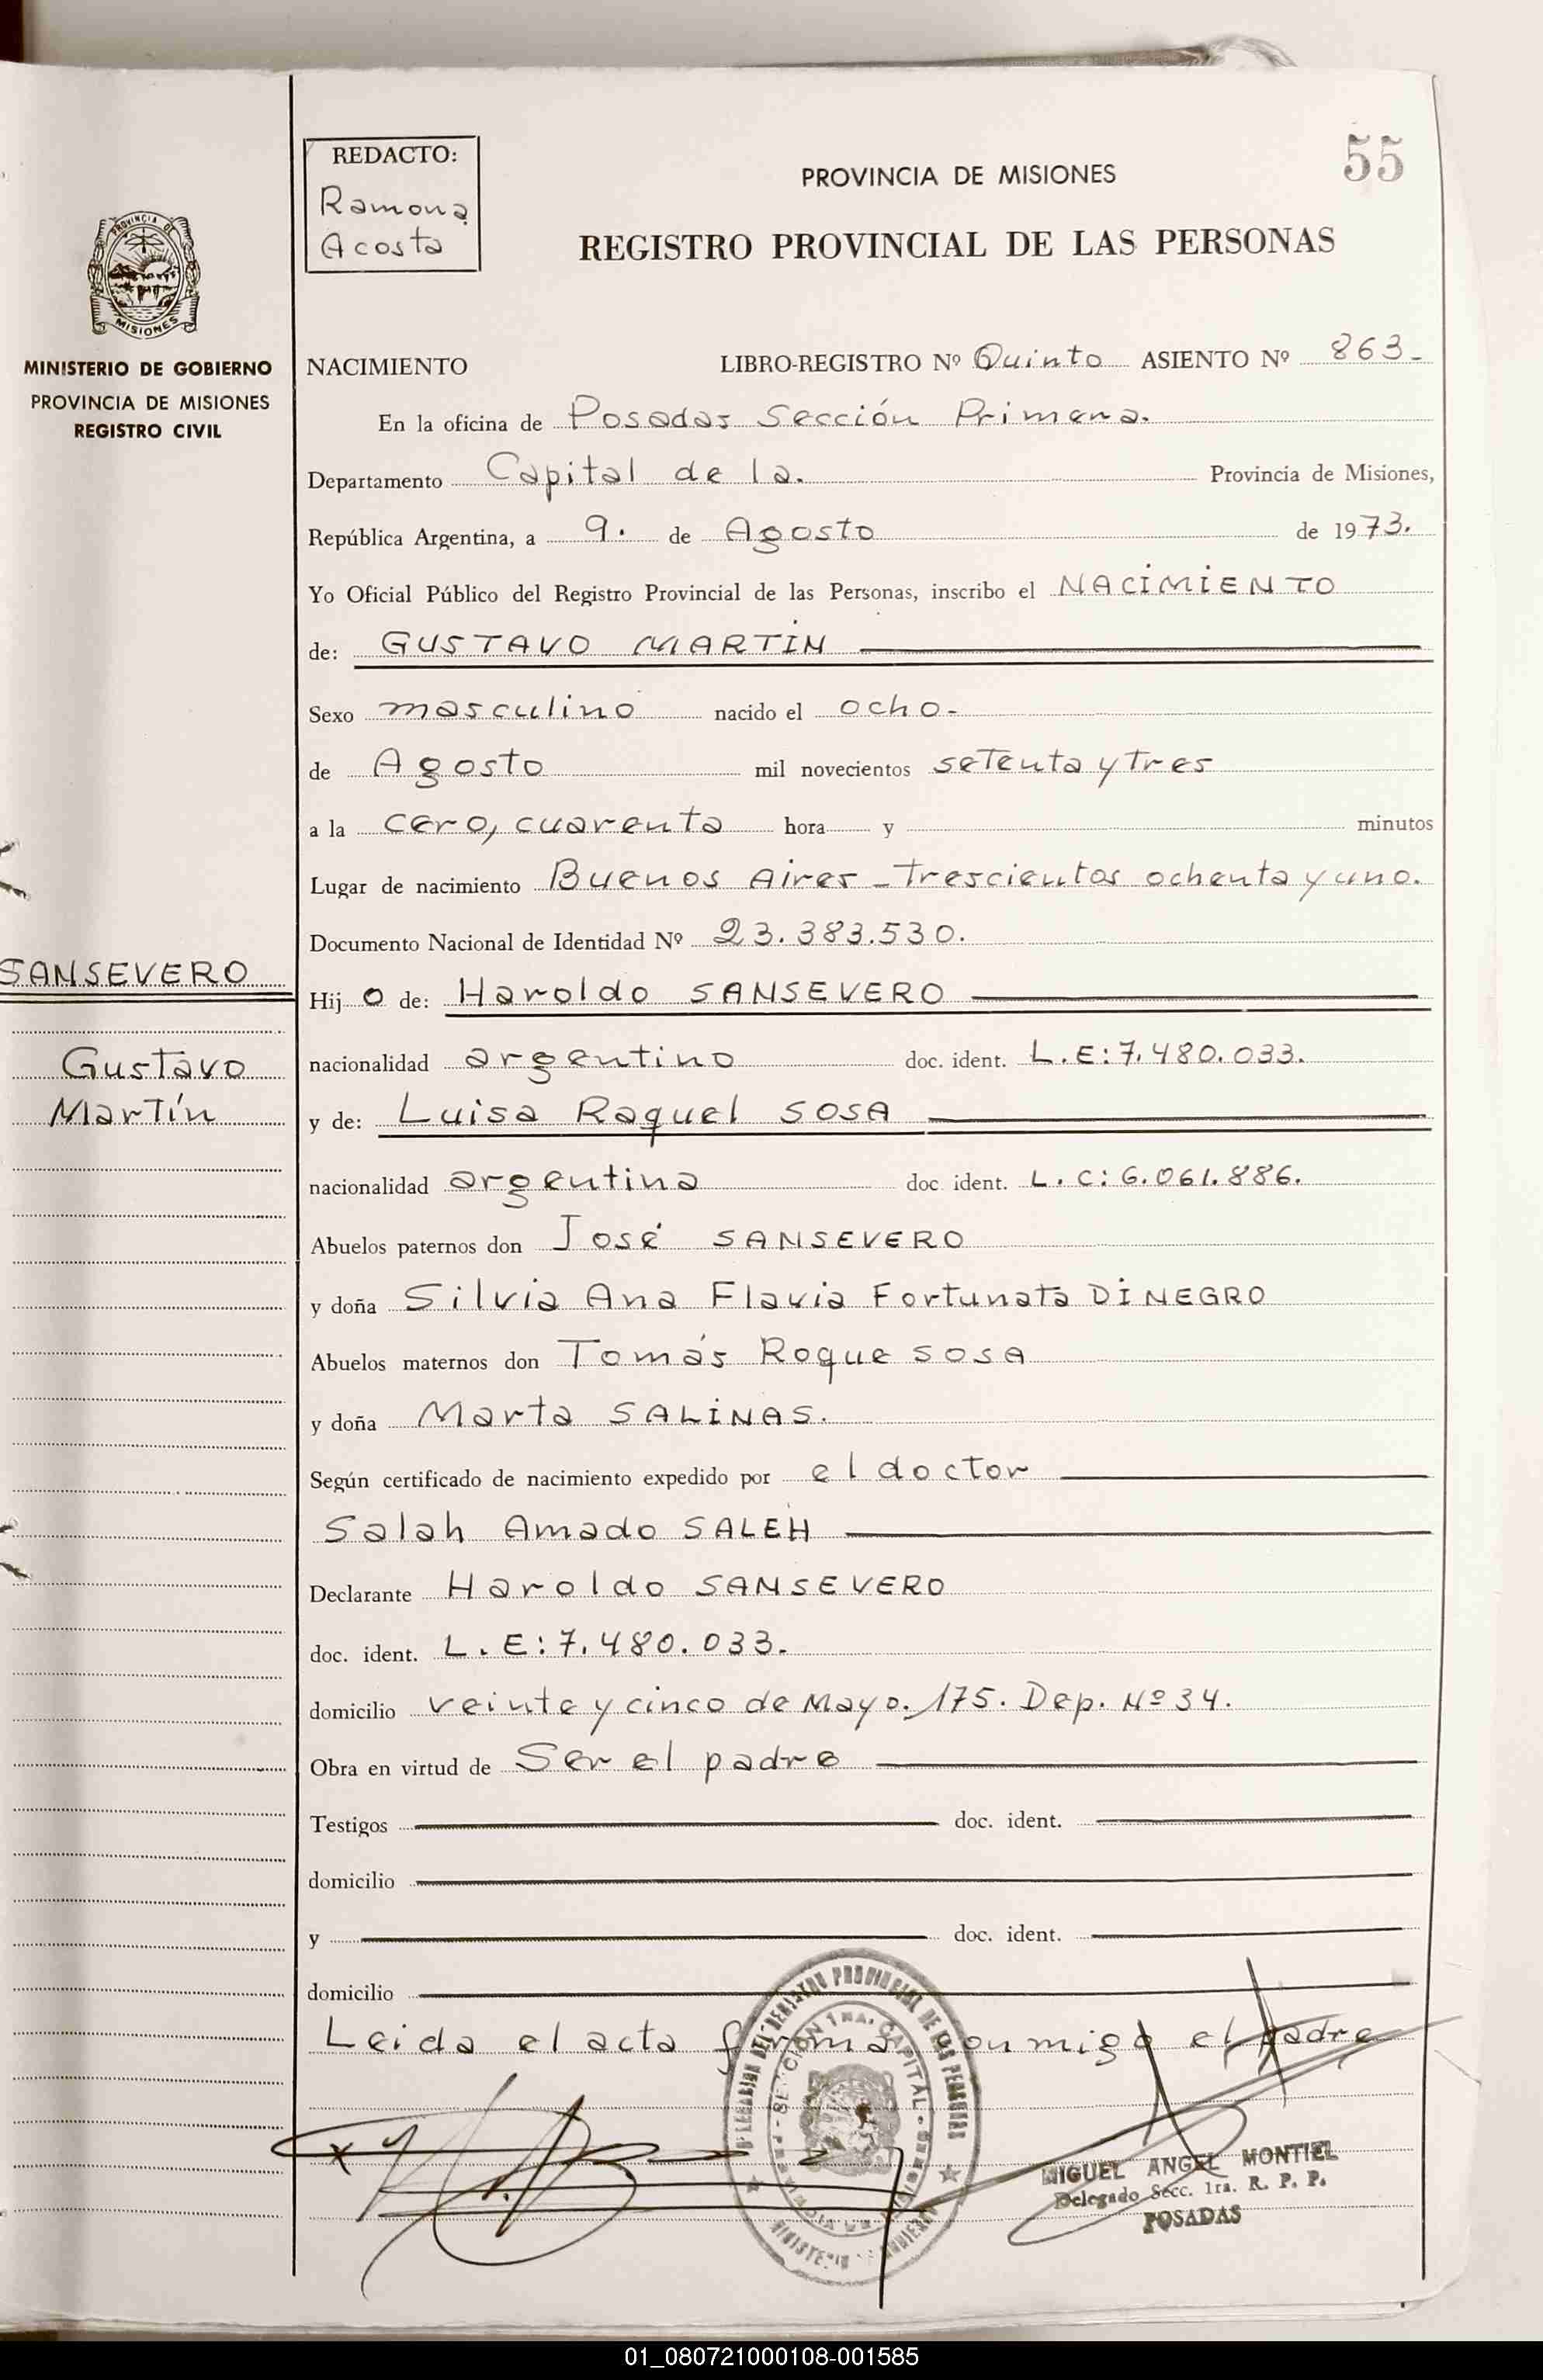 55
REDACTO:
Ramona
Acosta
PROVINCIA DE MISIONES
REGISTRO PROVINCIAL DE LAS PERSONAS
PROVINCIA DE
MISIONES
MINISTERIO DE GOBIERNO
PROVINCIA DE MISIONES
REGISTRO CIVIL
NACIMIENTO LIBRO-REGISTRO Nº Quinto ASIENTO Nº 863-
En la oficina de Posadas Sección Primera.
Departamento Capital de la. Provincia de Misiones,
República Argentina, a 9. de Agosto de 1973.
Yo Oficial Público del Registro Provincial de las Personas, inscribo el NACIMIENTO
de: GUSTAVO MARTIN
Sexo masculino nacido el ocho-
de Agosto mil novecientos setenta y tres
a la cero, cuarenta hora y minutos
Lugar de nacimiento Buenos Aires - Trescientos ochenta y uno.
Documento Nacional de Identidad Nº 23.383.530.
SANSEVERO
Hij o de: Haroldo SANSEVERO
Gustavo
Martín
nacionalidad argentino doc. ident. L.E: 7.480.033.
y de: Luisa Raquel SOSA
nacionalidad argentina doc. ident. L.C: 6.061.886.
Abuelos paternos don José SANSEVERO
y doña Silvia Ana Flavia Fortunata DINEGRO
Abuelos maternos don Tomás Roque SOSA
y doña Marta SALINAS.
Según certificado de nacimiento expedido por el doctor
Salah Amado SALEH
Declarante Haroldo SANSEVERO
doc. ident. L.E: 7.480.033.
domicilio veinte y cinco de Mayo. 175. Dep. Nº 34.
Obra en virtud de Ser el padre
Testigos doc. ident.
domicilio
y doc. ident.
domicilio
Leida el acta firma conmigo el padre
MIGUEL ANGEL MONTIEL
Delegado Secc. 1ra. R. P. P.
POSADAS
01_080721000108-001585